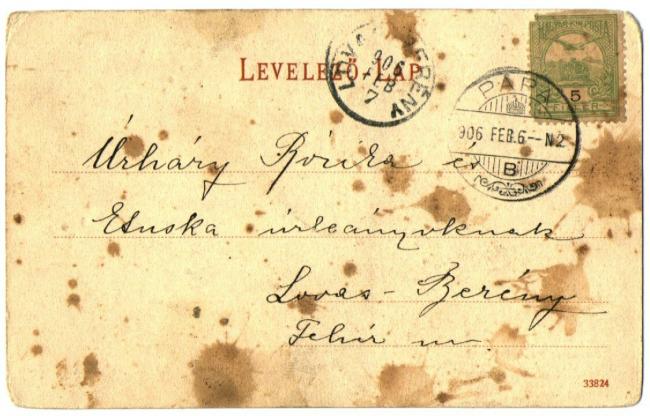 LEVELEZŐ-LAP
LOVASBERÉNY
906
FEB
7
MAGYAR KIR. POSTA
5
FILLÉR
PÁPA
906 FEB.6 – N2
B
Úrháry Rózika és
Etuska úrleányoknak
Lovas-Berény
Fehér m
33824